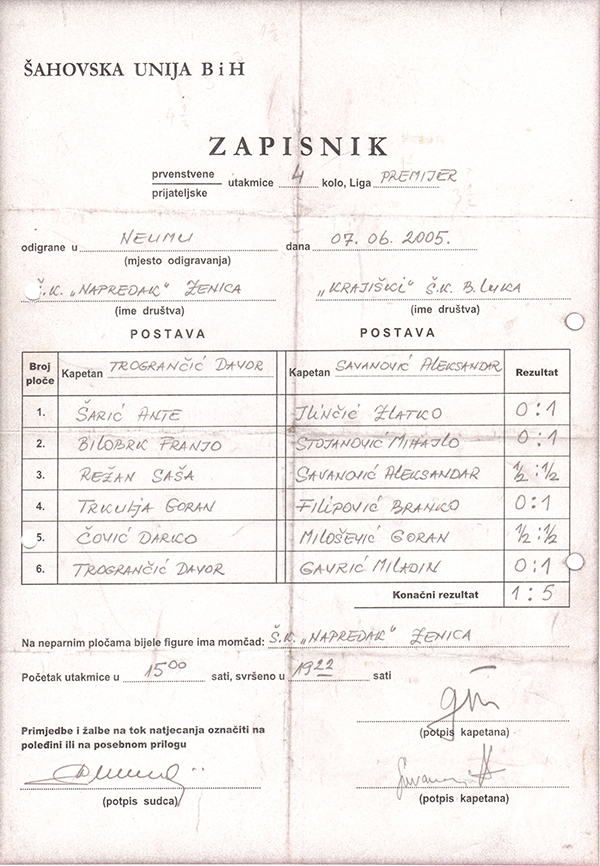 ŠAHOVSKA UNIJA B i H
ZAPISNIK
prvenstvene
prijateljske utakmice 4 kolo, Liga PREMIJER
odigrane u NEUMU dana 07. 06. 2005.
(mjesto odigravanja)
Š.K. „NAPREDAK" ZENICA „KRAJIŠKI" Š.K. B. LUKA
(ime društva) (ime društva)
POSTAVA POSTAVA
Broj ploče Kapetan TROGRANČIĆ DAVOR Kapetan SAVANOVIĆ ALEKSANDAR Rezultat
1. ŠARIĆ ANTE ILINČIĆ ZLATKO 0:1
2. BILOBRK FRANJO STOJANOVIĆ MIHAJLO 0:1
3. REŽAN SAŠA SAVANOVIĆ ALEKSANDAR ½:½
4. TRKULJA GORAN FILIPOVIĆ BRANKO 0:1
5. ČOVIĆ DARKO MILOŠEVIĆ GORAN ½:½
6. TROGRANČIĆ DAVOR GAVRIĆ MILADIN 0:1
Konačni rezultat 1:5
Na neparnim pločama bijele figure ima momčad: Š.K. „NAPREDAK" ZENICA
Početak utakmice u 15 00 sati, svršeno u 19 22 sati
(potpis kapetana)
Primjedbe i žalbe na tok natjecanja označiti na
poleđini ili na posebnom prilogu
(potpis sudca) (potpis kapetana)